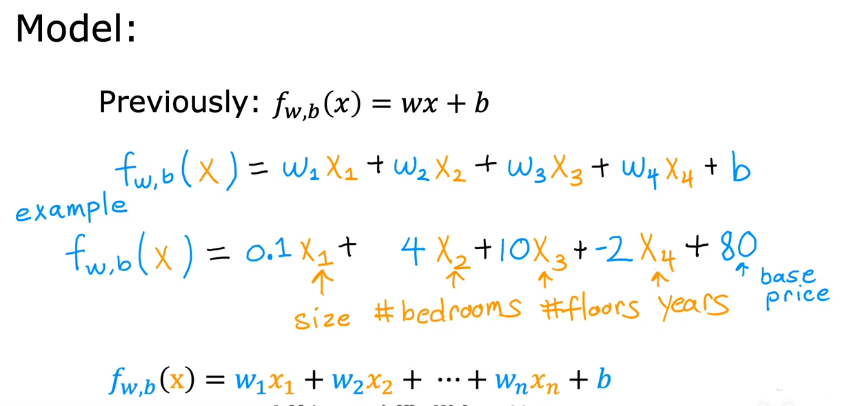 Model:
Previously: f_{w,b}(x) = wx + b
f_{w,b}(x) = w₁x₁ + w₂x₂ + w₃x₃ + w₄x₄ + b
example
f_{w,b}(x) = 0.1x₁ + 4x₂ + 10x₃ + -2x₄ + 80
size #bedrooms #floors years base price
f_{w,b}(x) = w₁x₁ + w₂x₂ + ⋯ + wₙxₙ + b